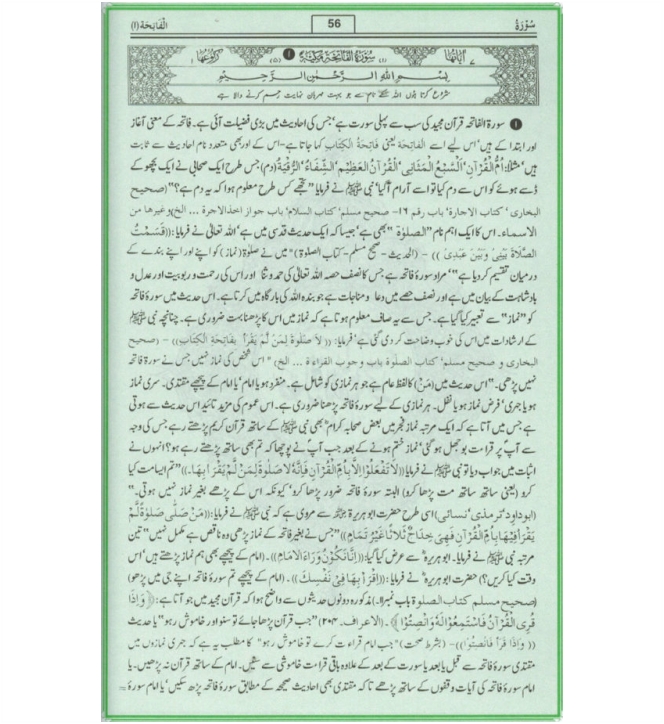 سُوْرَةُ 56 الْفَاتِحَة (۱)
۷ اٰیَاتُهَا (۱) سُوْرَةُ الْفَاتِحَةِ مَكِّيَّةٌ (۵) رُكُوْعُهَا ۱
بِسْمِ اللّٰهِ الرَّحْمٰنِ الرَّحِيْمِ
شروع کرتا ہوں اللہ کے نام سے جو بہت مہربان نہایت رحم کرنے والا ہے
سورۃ الفاتحہ قرآن مجید کی سب سے پہلی سورت ہے' جس کی احادیث میں بڑی فضیلت آئی ہے۔ فاتحہ کے معنی آغاز
اور ابتدا کے ہیں' اس لیے اسے الفَاتِحَة یعنی فَاتِحَةُ الْكِتَاب کہا جاتا ہے۔ اس کے اور بھی متعدد نام احادیث سے ثابت
ہیں' مثلاً: اُمُّ الْقُرْآن' اَلسَّبْعُ الْمَثَانِی' اَلْقُرْآنُ الْعَظِيْم' الشِّفَاءُ' الرُّقْيَةُ (دم) جس طرح ایک صحابی نے ایک بچھو کے
ڈسے ہوئے کو اس سے دم کیا تو اسے آرام آگیا' نبی ﷺ نے فرمایا "تجھے کس طرح معلوم ہوا کہ یہ دم ہے؟" (صحیح
البخاری' کتاب الاجارة' باب رقم ۱۶- صحیح مسلم' کتاب السلام' باب جواز اخذ الاجرة ... الخ) وغیرها من
الاسماء۔ اس کا ایک اہم نام "الصلوٰة" بھی ہے' جیسا کہ ایک حدیث قدسی میں ہے' اللہ تعالیٰ نے فرمایا: ((قَسَمْتُ
الصَّلَاةَ بَيْنِي وَبَيْنَ عَبْدِي)) - (الحدیث - صحیح مسلم - کتاب الصلوة) "میں نے صلوٰة (نماز) کو اپنے اور اپنے بندے کے
درمیان تقسیم کر دیا ہے"' مراد سورۂ فاتحہ ہے جس کا نصف حصہ اللہ تعالیٰ کی حمد و ثنا اور اس کی رحمت و ربوبیت اور عدل و
بادشاہت کے بیان میں ہے اور نصف حصے میں دعا و مناجات ہے جو بندہ اللہ کی بارگاہ میں کرتا ہے۔ اس حدیث میں سورۂ فاتحہ
کو "نماز" سے تعبیر کیا گیا ہے۔ جس سے یہ صاف معلوم ہوتا ہے کہ نماز میں اس کا پڑھنا بہت ضروری ہے۔ چنانچہ نبی ﷺ
کے ارشادات میں اس کی خوب وضاحت کر دی گئی ہے' فرمایا: ((لاَ صَلٰوةَ لِمَنْ لَمْ يَقْرَأْ بِفَاتِحَةِ الْكِتَابِ)) - (صحیح
البخاری و صحیح مسلم' کتاب الصلوة باب وجوب القراءة ... الخ) "اس شخص کی نماز نہیں جس نے سورۂ فاتحہ
نہیں پڑھی۔" اس حدیث میں (مَنْ) کا لفظ عام ہے جو ہر نمازی کو شامل ہے۔ منفرد ہو یا امام' یا امام کے پیچھے مقتدی۔ سری نماز
ہو یا جہری' فرض نماز ہو یا نفل۔ ہر نمازی کے لیے سورۂ فاتحہ پڑھنا ضروری ہے۔ اس عموم کی مزید تائید اس حدیث سے ہوتی
ہے جس میں آتا ہے کہ ایک مرتبہ نماز فجر میں بعض صحابہ کرام بھی نبی ﷺ کے ساتھ قرآن کریم پڑھتے رہے جس کی وجہ
سے آپ پر قراءت بوجھل ہو گئی' نماز ختم ہونے کے بعد جب آپ نے پوچھا کہ تم بھی ساتھ پڑھتے رہے ہو؟ انہوں نے
اثبات میں جواب دیا تو نبی ﷺ نے فرمایا ((لاَ تَفْعَلُوْا اِلاَّ بِاُمِّ الْقُرْآنِ فَاِنَّهُ لاَ صَلٰوةَ لِمَنْ لَمْ يَقْرَأْ بِهَا۔)) "تم ایسا مت کیا
کرو (یعنی ساتھ ساتھ مت پڑھا کرو) البتہ سورۂ فاتحہ ضرور پڑھا کرو' کیونکہ اس کے پڑھے بغیر نماز نہیں ہوتی۔"
(ابوداود' ترمذی' نسائی) اسی طرح حضرت ابو ہریرہ سے مروی ہے کہ نبی ﷺ نے فرمایا: ((مَنْ صَلَّى صَلٰوةً لَّمْ
يَقْرَأْ فِيْهَا بِأُمِّ الْقُرْآنِ فَهِيَ خِدَاجٌ ثَلَاثًا غَيْرُ تَمَامٍ)) "جس نے بغیر فاتحہ کے نماز پڑھی وہ ناقص ہے مکمل نہیں" تین
مرتبہ نبی ﷺ نے فرمایا۔ ابو ہریرہ سے عرض کیا گیا: ((اِنَّا نَكُوْنُ وَرَاءَ الْاِمَامِ)) - (امام کے پیچھے بھی ہم نماز پڑھتے ہیں' اس
وقت کیا کریں؟) حضرت ابو ہریرہ نے فرمایا: ((اِقْرَأْ بِهَا فِيْ نَفْسِكَ)) - (امام کے پیچھے تم سورۂ فاتحہ اپنے جی میں پڑھو)
(صحیح مسلم کتاب الصلوة باب نمبر۱۱)۔ مذکورہ دونوں حدیثوں سے واضح ہوا کہ قرآن مجید میں جو آتا ہے: ﴿وَاِذَا
قُرِئَ الْقُرْآنُ فَاسْتَمِعُوْا لَهُ وَاَنْصِتُوْا﴾ - (الاعراف۔ ۲۰۴) "جب قرآن پڑھا جائے تو سنو اور خاموش رہو" یا حدیث
((وَاِذَا قَرَأَ فَانْصِتُوْا)) - (بشرط صحت) "جب امام قراءت کرے تو خاموش رہو" کا مطلب یہ ہے کہ جہری نمازوں میں
مقتدی سورۂ فاتحہ سے قبل یا بعد یا سورت کے بعد کے علاوہ باقی قراءت خاموشی سے سنیں۔ امام کے ساتھ قرآن نہ پڑھیں۔ یا
امام سورۂ فاتحہ کی آیات وقفوں کے ساتھ پڑھے تاکہ مقتدی بھی احادیث صحیحہ کے مطابق سورۂ فاتحہ پڑھ سکیں' یا امام سورۂ